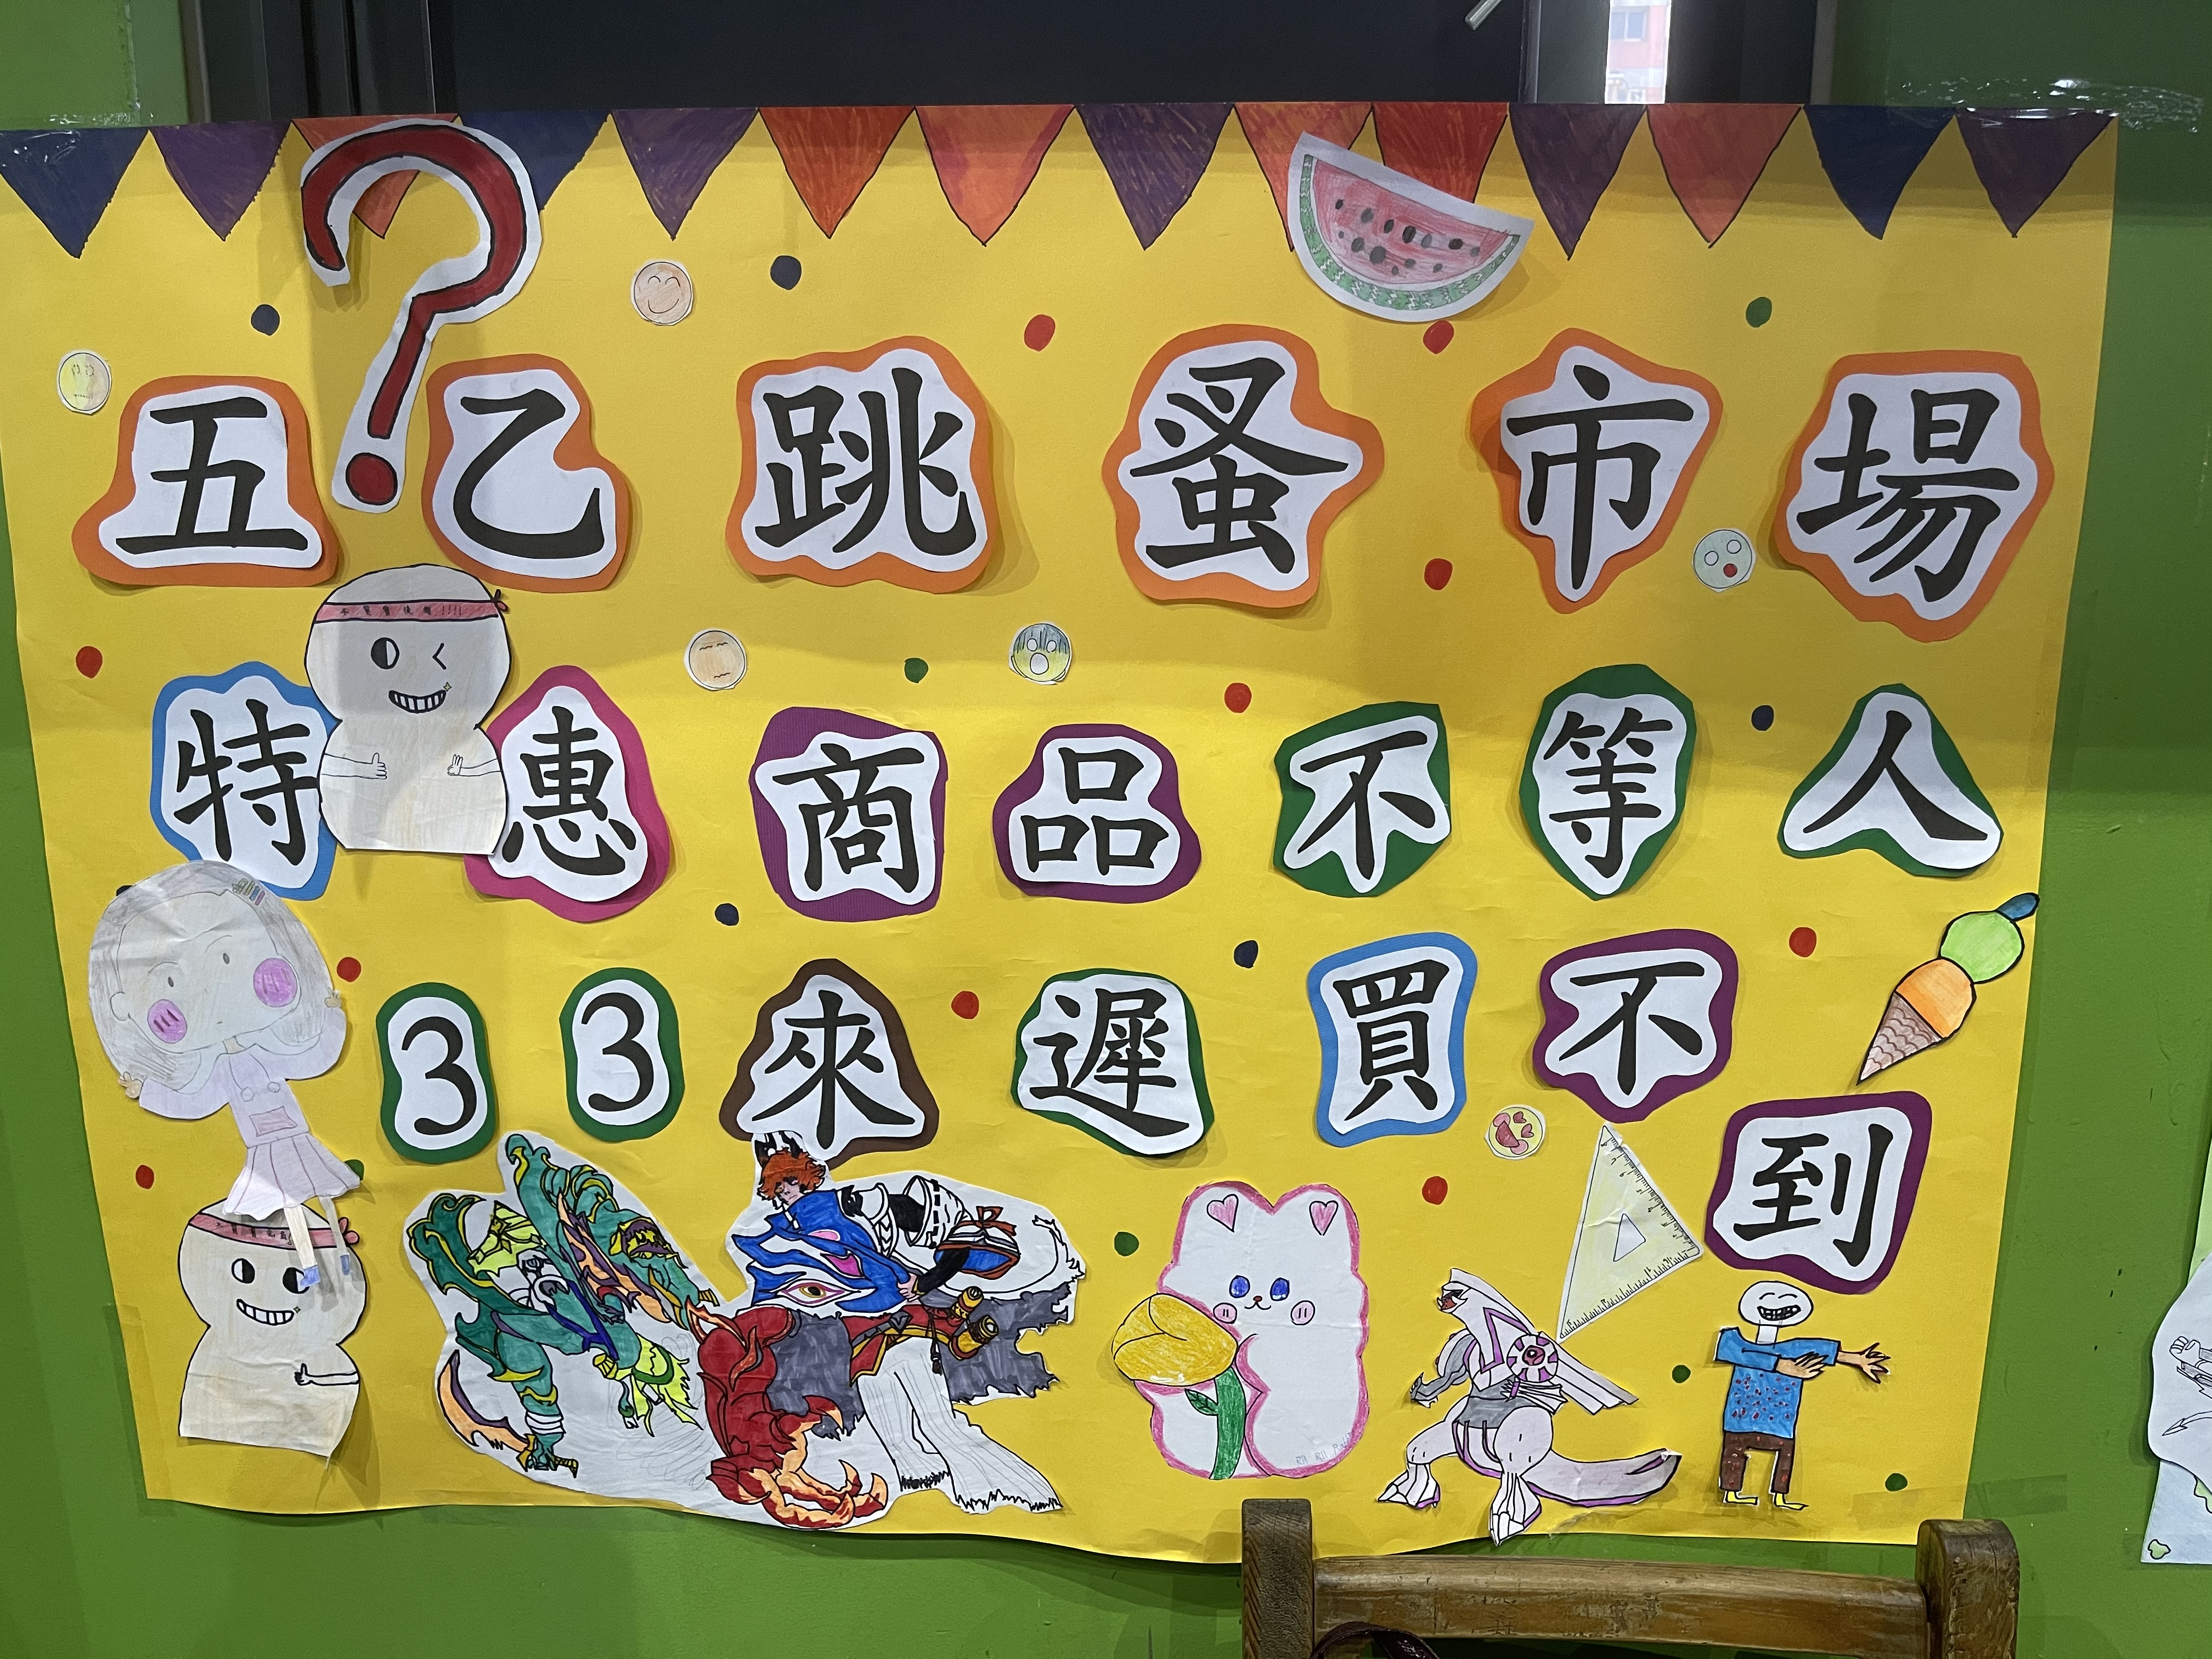 五乙跳蚤市場
特惠商品不等人
33來遲買不
到